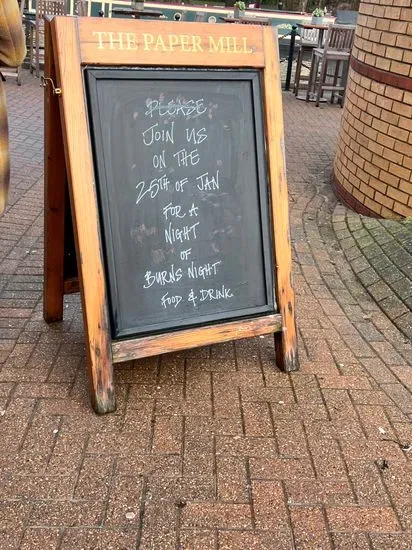 THE PAPER MILL
PLEASE
JOIN US
ON THE
25TH OF JAN
FOR A
NIGHT
OF
BURNS NIGHT
FOOD & DRINK